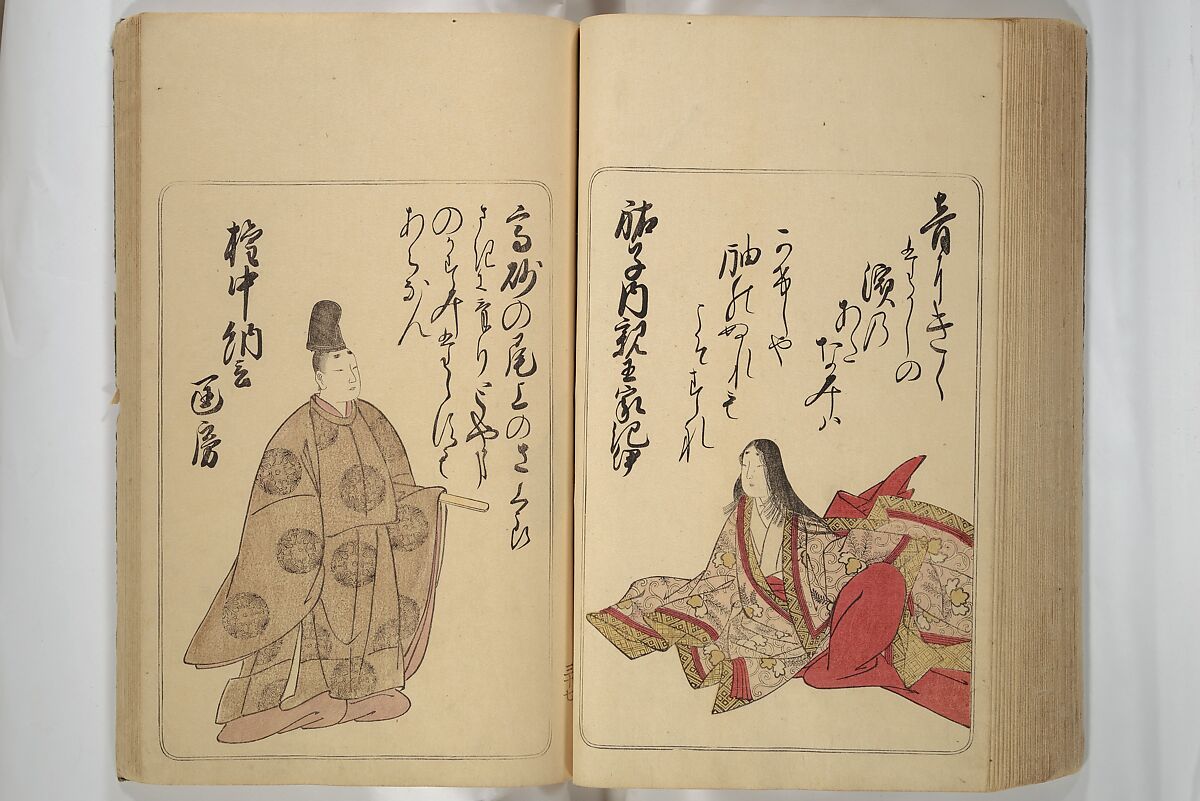 音にきく
たかしの
濱乃
あた
なみハ
かけしや
袖のぬれも
こそすれ
祐子内親王家紀伊
高砂の尾上のさくら
さきにけりとやま
のかすみたゝすも
あらなん
権中納言
匡房